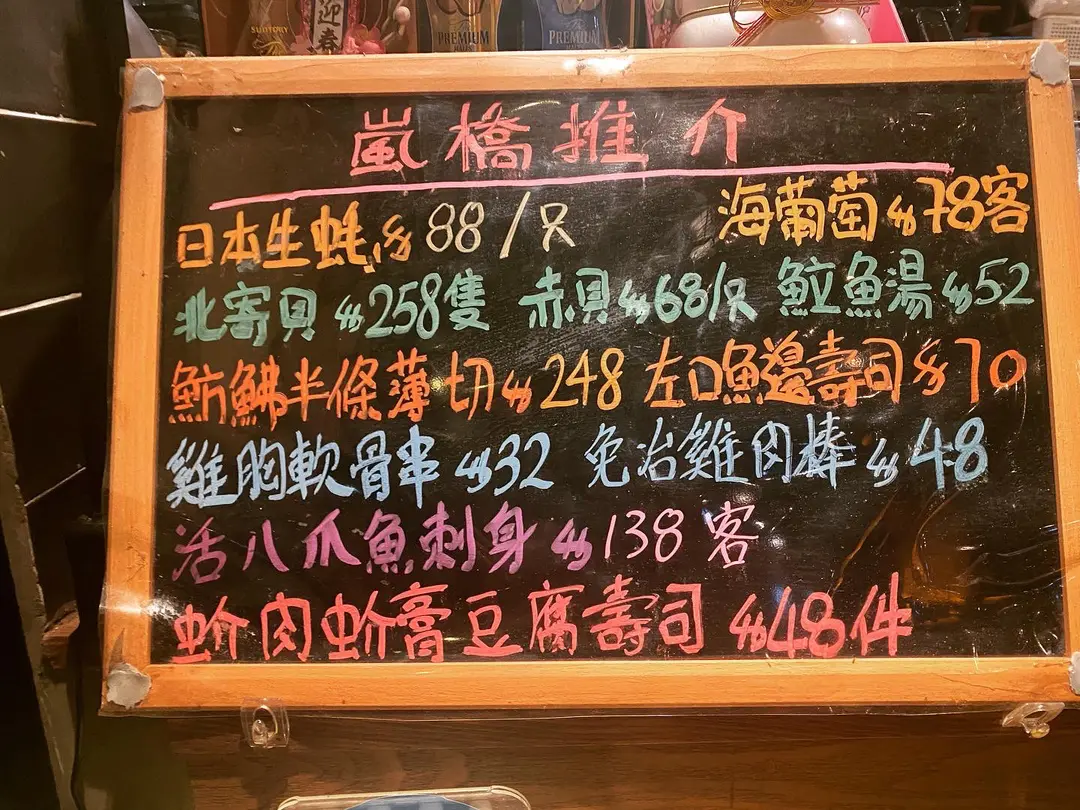 SUNTORY
迎春
PREMIUM
PREMIUM
嵐橋推介
日本生蚝$88/只 海葡萄$78客
北寄貝$258隻 赤貝$68/只 魟魚湯$52
魴鮄半條薄切$248 左口魚邊壽司$70
雞胸軟骨串$32 免治雞肉棒$48
活八爪魚刺身$138客
蚧肉蚧膏豆腐壽司$48件